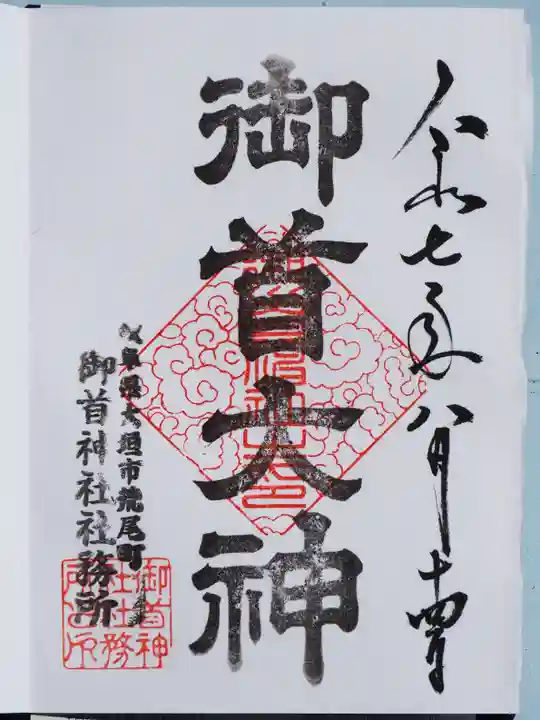 令和七年八月十四日
御首大神
岐阜県大垣市荒尾町
御首神社社務所
御首神
社社務
所之印